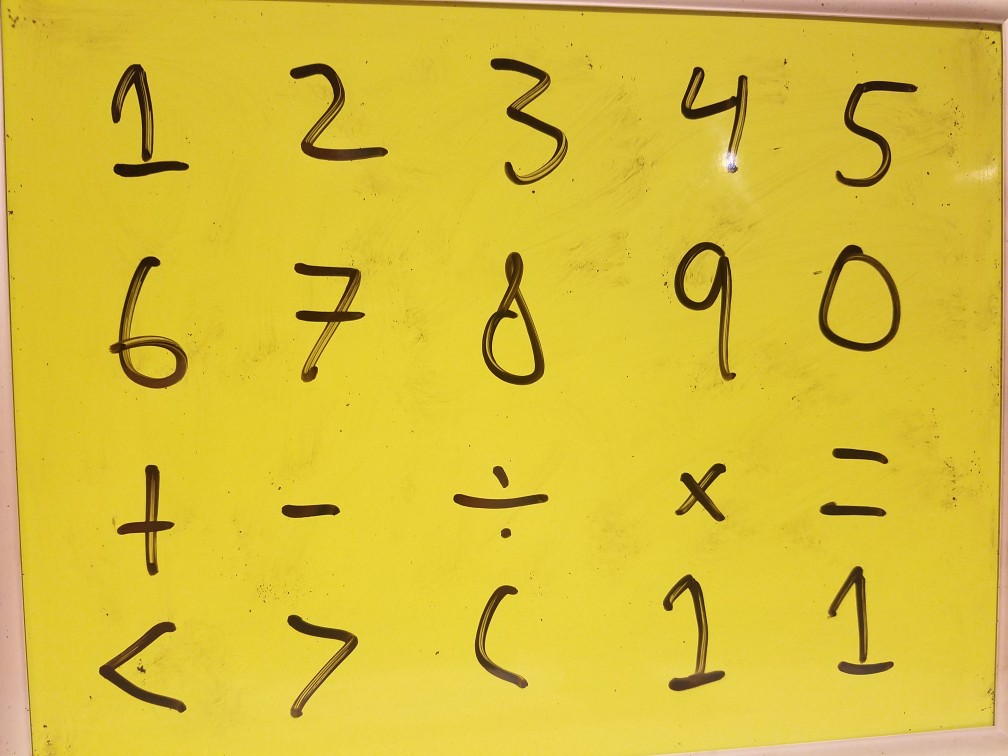 1 2 3 4 5
6 7 8 9 0
+ - ÷ × =
< > ( 1 1